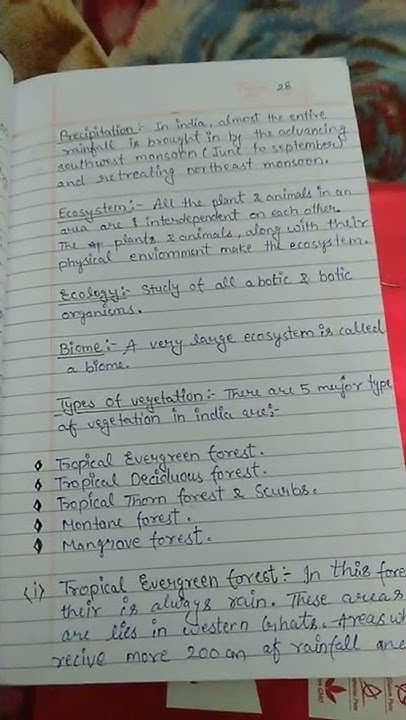 28
Precipitation:- In india, almost the entire
rainfall is brought in by the advancing
southwest monsoon (June to september)
and retreating northeast monsoon.
Ecosystem:- All the plant & animals in an
area are interdependent on each other.
The plants & animals, along with their
physical enviornment make the ecosystem.
Ecology:- Study of all abotic & botic
organisms.
Biome:- A very large ecosystem is called
a biome.
Types of vegetation:- There are 5 major type
of vegetation in india are:-
Tropical Evergreen forest.
Tropical Deciduous forest.
Tropical Thorn forest & Scurbs.
Montane forest.
Mangrove forest.
(i) Tropical Evergreen forest:- In this fore
their is always rain. These areas
are lies in western Ghats. Areas wh
recive more 200cm of rainfall and